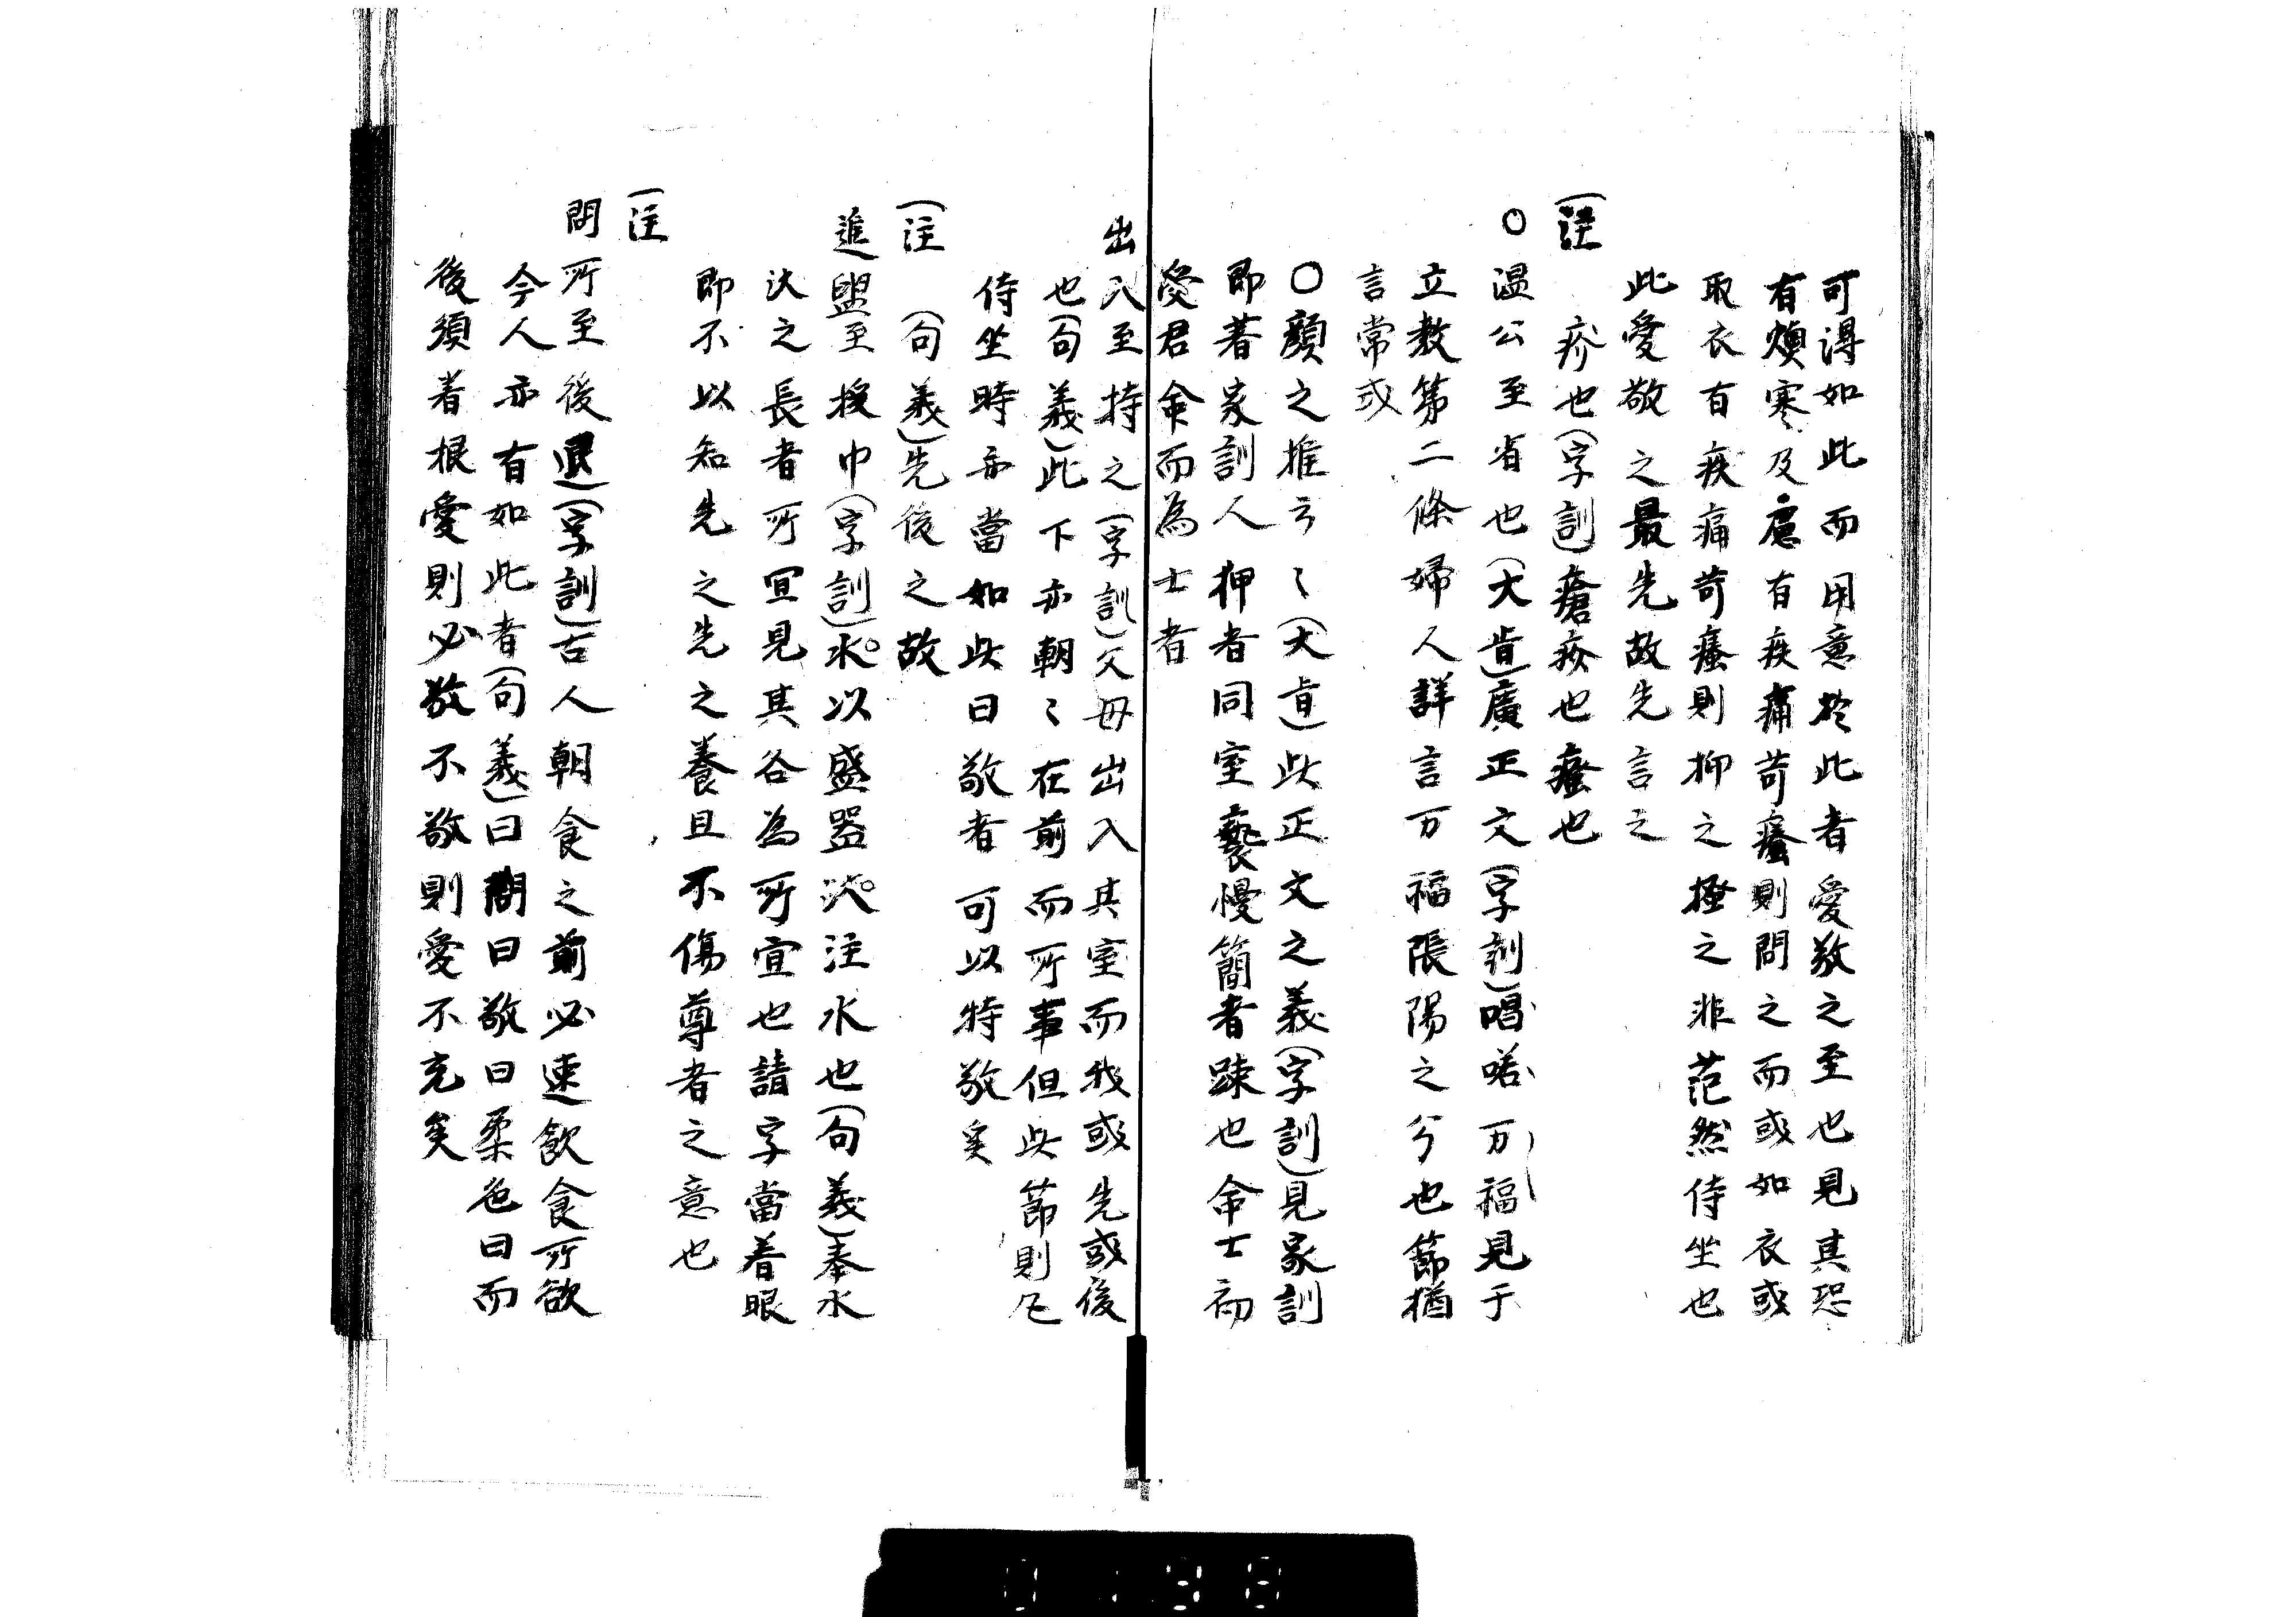 可得如此而用意於此者愛敬之至也見其恐
有燠寒及慮有疾痛苛癢則問之而或如衣或
取衣有疾痛苛癢則抑之搔之非茫然侍坐也
此愛敬之最先故先言之
(註
疥也(字訓)瘡疥也癢也
○溫公至省也(大旨)廣正文(字訓)唱喏万福見于
立教第二條婦人詳言万福張陽之兮也節猶
言常或
○顏之推云々(大旨)此正文之義(字訓)見家訓
即著家訓人狎者同室褻慢簡者踈也命士初
受君命而為士者
出入至持之(字訓)父母出入其室而我或先或後
也(句義)此下亦朝々在前而所事但此節則凡
侍坐時亦當如此曰敬者可以特敬矣
(注
(句義)先後之故
進盥至授巾(字訓)水以盛器沃注水也(句義)奉水
沃之長者所宜見其各為所宜也請字當着眼
即不以知先之先之養且不傷尊者之意也
(注
問所至後退(字訓)古人朝食之前必速飲食所欲
今人亦有如此者(句義)曰問曰敬曰柔色曰而
後須着根愛則必敬不敬則愛不充矣